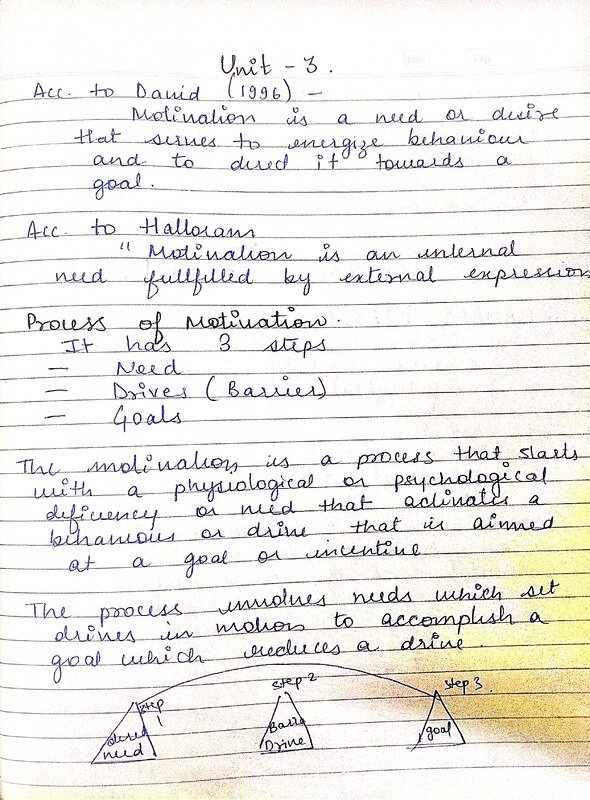 Unit - 3.
Acc. to David (1996) -
Motivation is a need or desire
that serves to energize behaviour
and to direct it towards a
goal.
Acc. to Halloram
" Motivation is an internal
need fullfilled by external expression
Process of Motivation.
It has 3 steps
- Need
- Drives (Barrier)
- Goals
The motivation is a process that starts
with a physiological or psychological
deficency or need that activates a
behaviour or drive that is aimed
at a goal or incentive
The process involves needs which set
drives in motion to accomplish a
goal which reduces a drive.
step 1
step 2
step 3.
need
Drive
goal